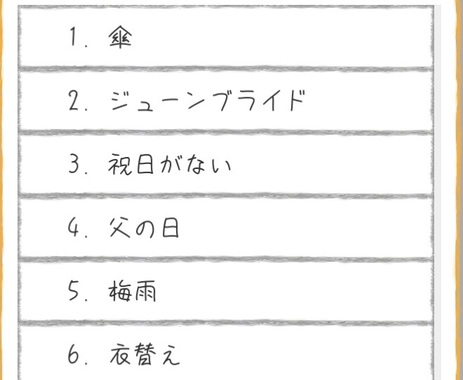 1. 傘
2. ジューンブライド
3. 祝日がない
4. 父の日
5. 梅雨
6. 衣替え